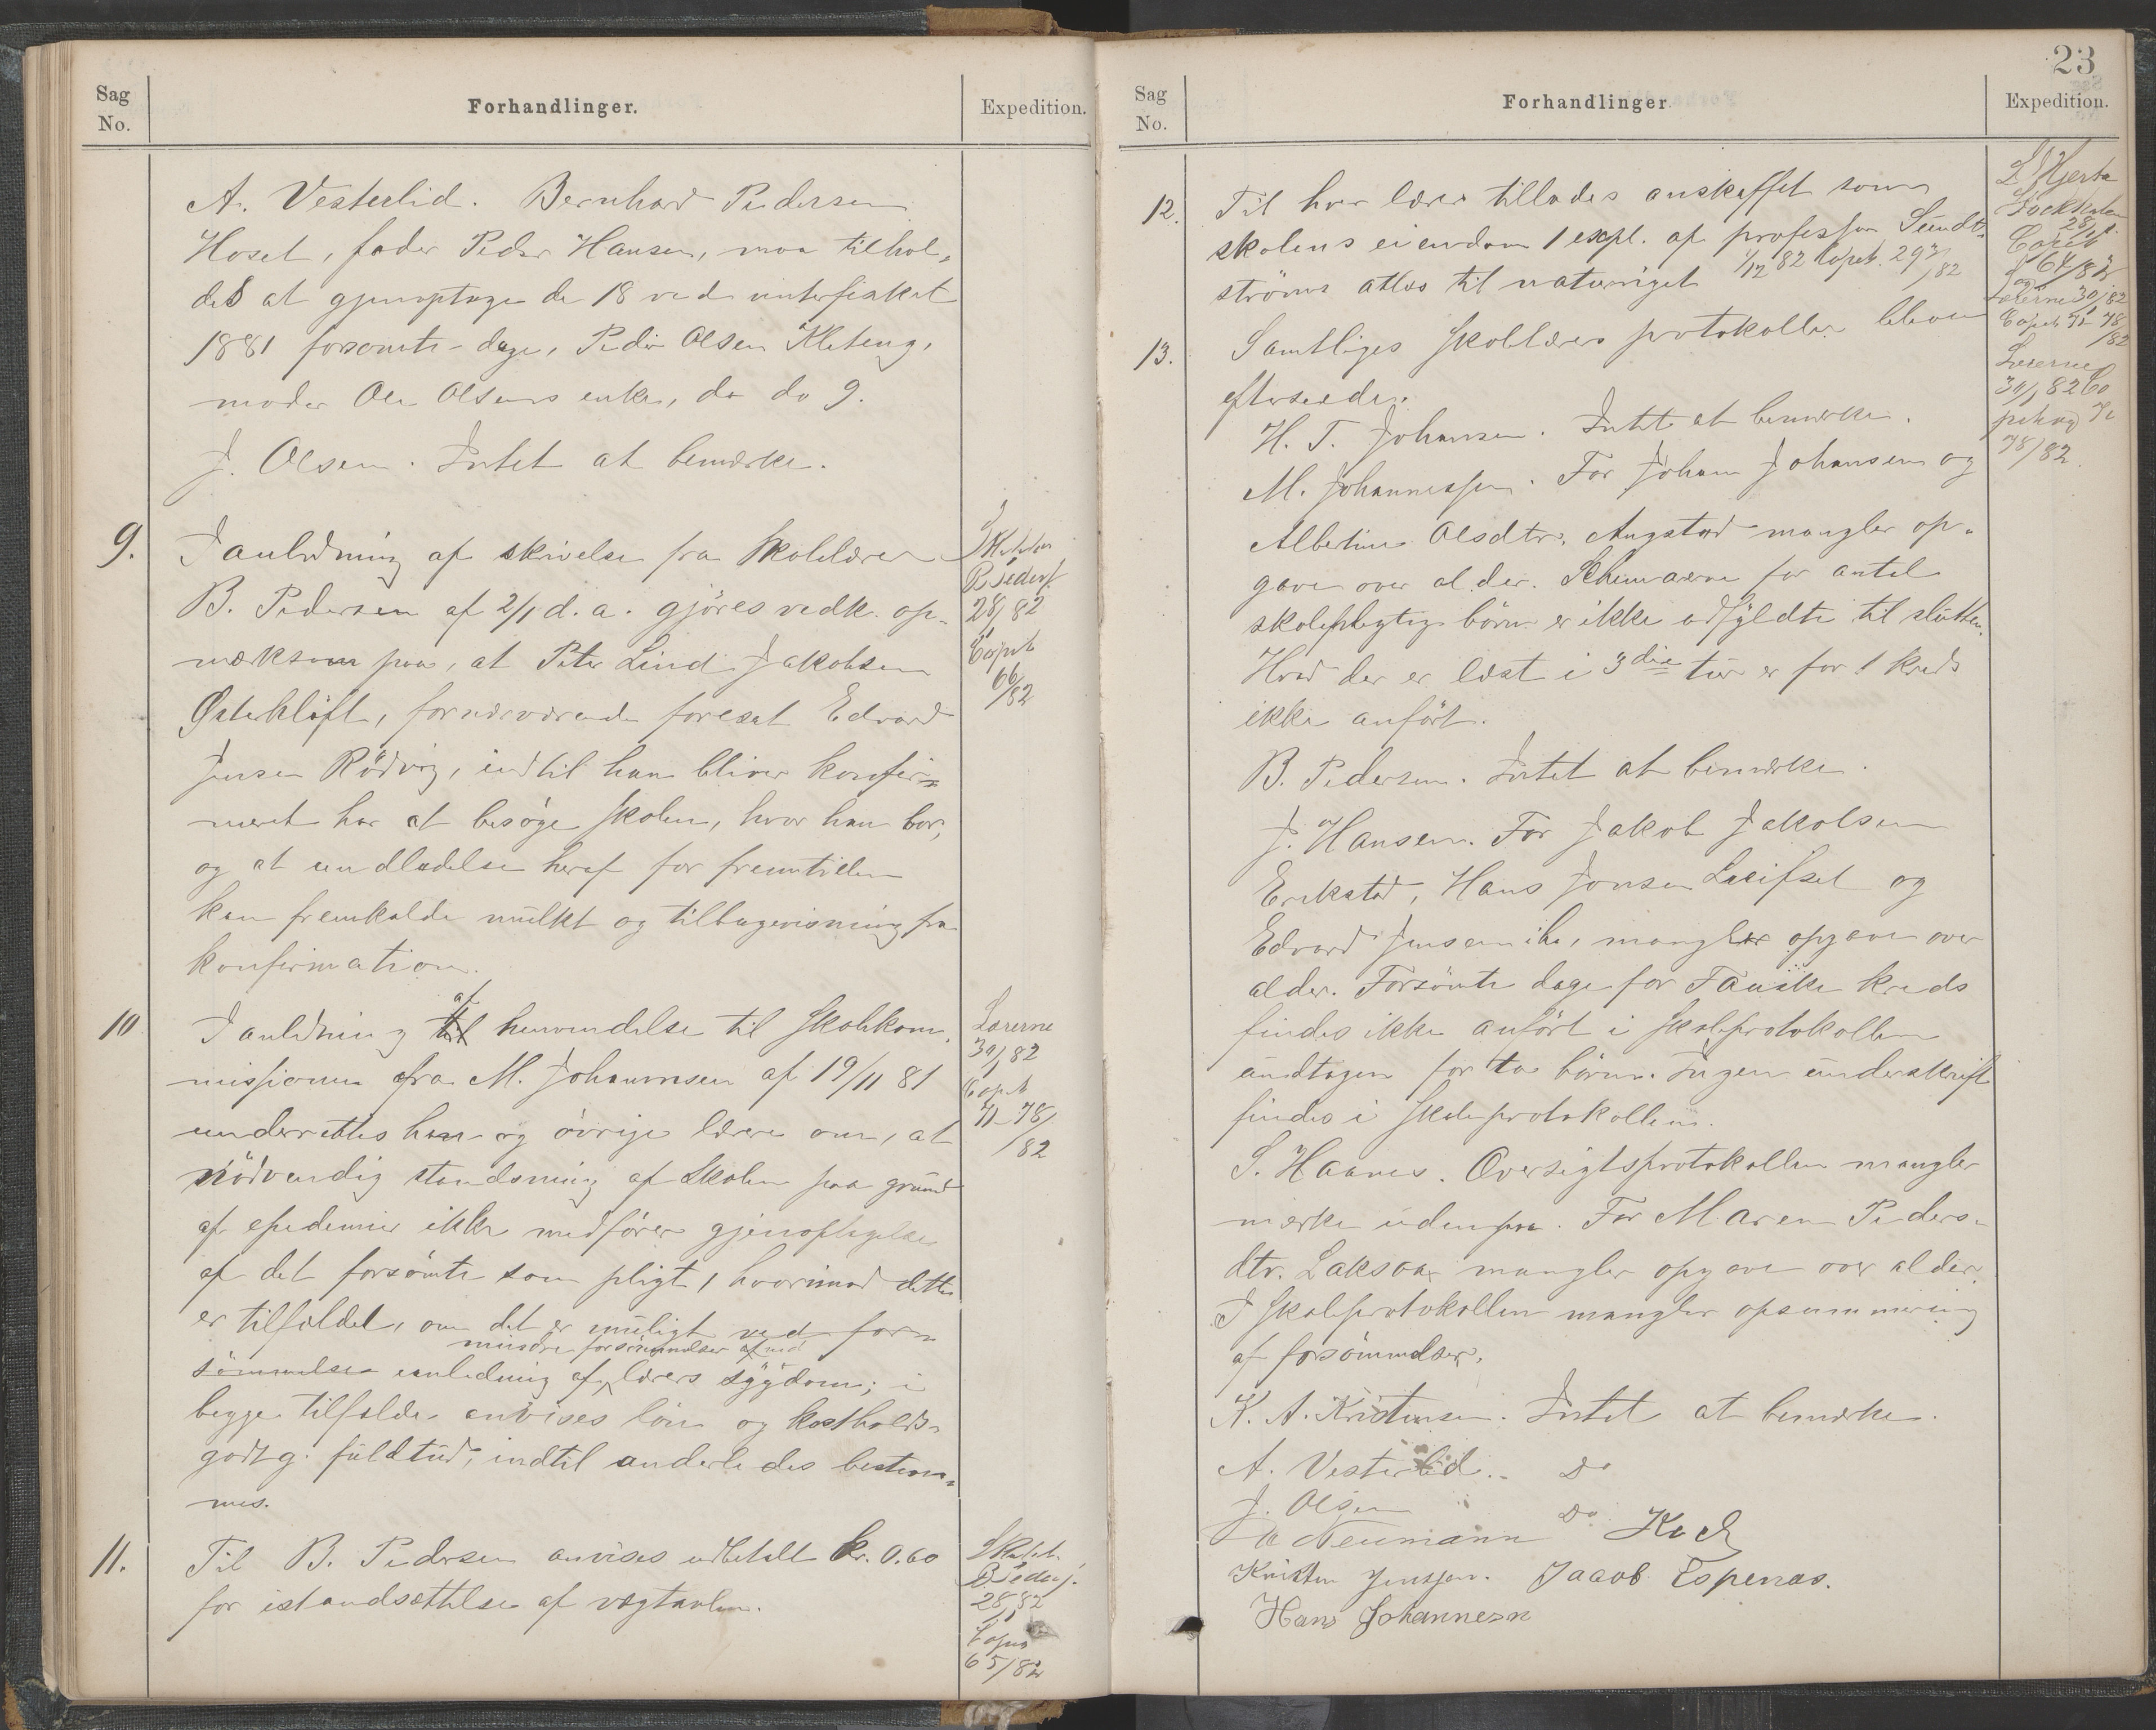 Sag
No.
Forhandlinger.
Expedition.
A. Vesterlid. Bernhard Pedersen
Hoset, fader Peder Hansen, maa tilhol-
des at gjenoptage de 18 ved vinterfisket
1881 forsømte dage, Peder Olsen Kleteng,
moder Ole Olsens enke, do do 9.
J. Olsen. Intet at bemærke.
9.
I anledning af skrivelse fra skolelærer
B. Pedersen af 2/1 d. a. gjöres vedk. op-
mærksom paa, at Peter Lind Jakobsen
Østerkløft, fornærværende foresat Edvard
Jensen Rödvig, indtil han bliver konfir-
meret har at besöge skolen, hvor han bor,
og at undladelse heraf for fremtiden
kan fremkalde mulkt og tilbagevisning fra
konfirmation.
Skolelær
B. Peders.
28/1 82
Copib
66/82
10
I anledning til af henvendelse til skolekom-
missionen fra M. Johannesen af 19/11 81
underrettes han og övrige lærere om, at
nödvendig standsning af skolen paa grund
af epidemier ikke medförer gjenoptagelse
af det forsömte som pligt, hvorimod dette
er tilfældet, om det er muligt ved for-
mindre forsömmelser ved
sömmelse i anledning af lærers sygdom; i
begge tilfælde anvises lön og kostholds-
godtg. fuldtud, indtil anderledes bestem-
mes.
Lærerne
30/1 82
Copib
71-78/
/82
11.
Til B. Pedersen anvises udbetalt kr. 0.60
for istandsættelse af vægtavlen.
B. Peders.
28/1 82
65/82
23
Sag
No.
Forhandlinger
Expedition.
12.
Til hver lærer tillades anskaffet som
skolens eiendom 1 expl. af professor Sundt-
ströms atlas til naturriget 1/12 82 Copib. 293/82
L Hjerta
Stockholm
28/1
Copib
64/82
og
Lærerne 30/1 82
Copib 71 78
/82
13.
Samtliges skolelæreres protokoller bleve
efterseede.
H. T. Johansen. Intet at bemærke.
M. Johannessen. For Johan Johansen og
Albertine Olsdtr. Angstad mangler op-
gave over alder. Schemaerne for antal
skolepligtige börn er ikke udfyldte til slutten.
Hvad der er læst i 3die tur er for 1 kreds
ikke anfört.
B. Pedersen. Intet at bemærke.
J. Hansen. For Jakob Jakobsen
Erikstad, Hans Jonsen Leifset og
Edvard Jensen ibd. mangler opgave over
alder. Forsömte dage for Fauske kreds
findes ikke anfört i skoleprotokollen
undtagen for to börn. Ingen underskrift
findes i skoleprotokollen.
S. Haanes. Oversigtsprotokollen mangler
mærke udenpaa. For Maren Peders-
dtr. Laksaa mangler opgave over alder.
I skoleprotokollen mangler opsummering
af forsömmelser.
K. A. Kristensen. Intet at bemærke.
A. Vesterlid. Do
J. Olsen Do
Lærerne
30/1 82 Co
pibog 71
78/82.
Neumann Koch
Kristen Jenssen. Jacob Espenas.
Hans Johannesn